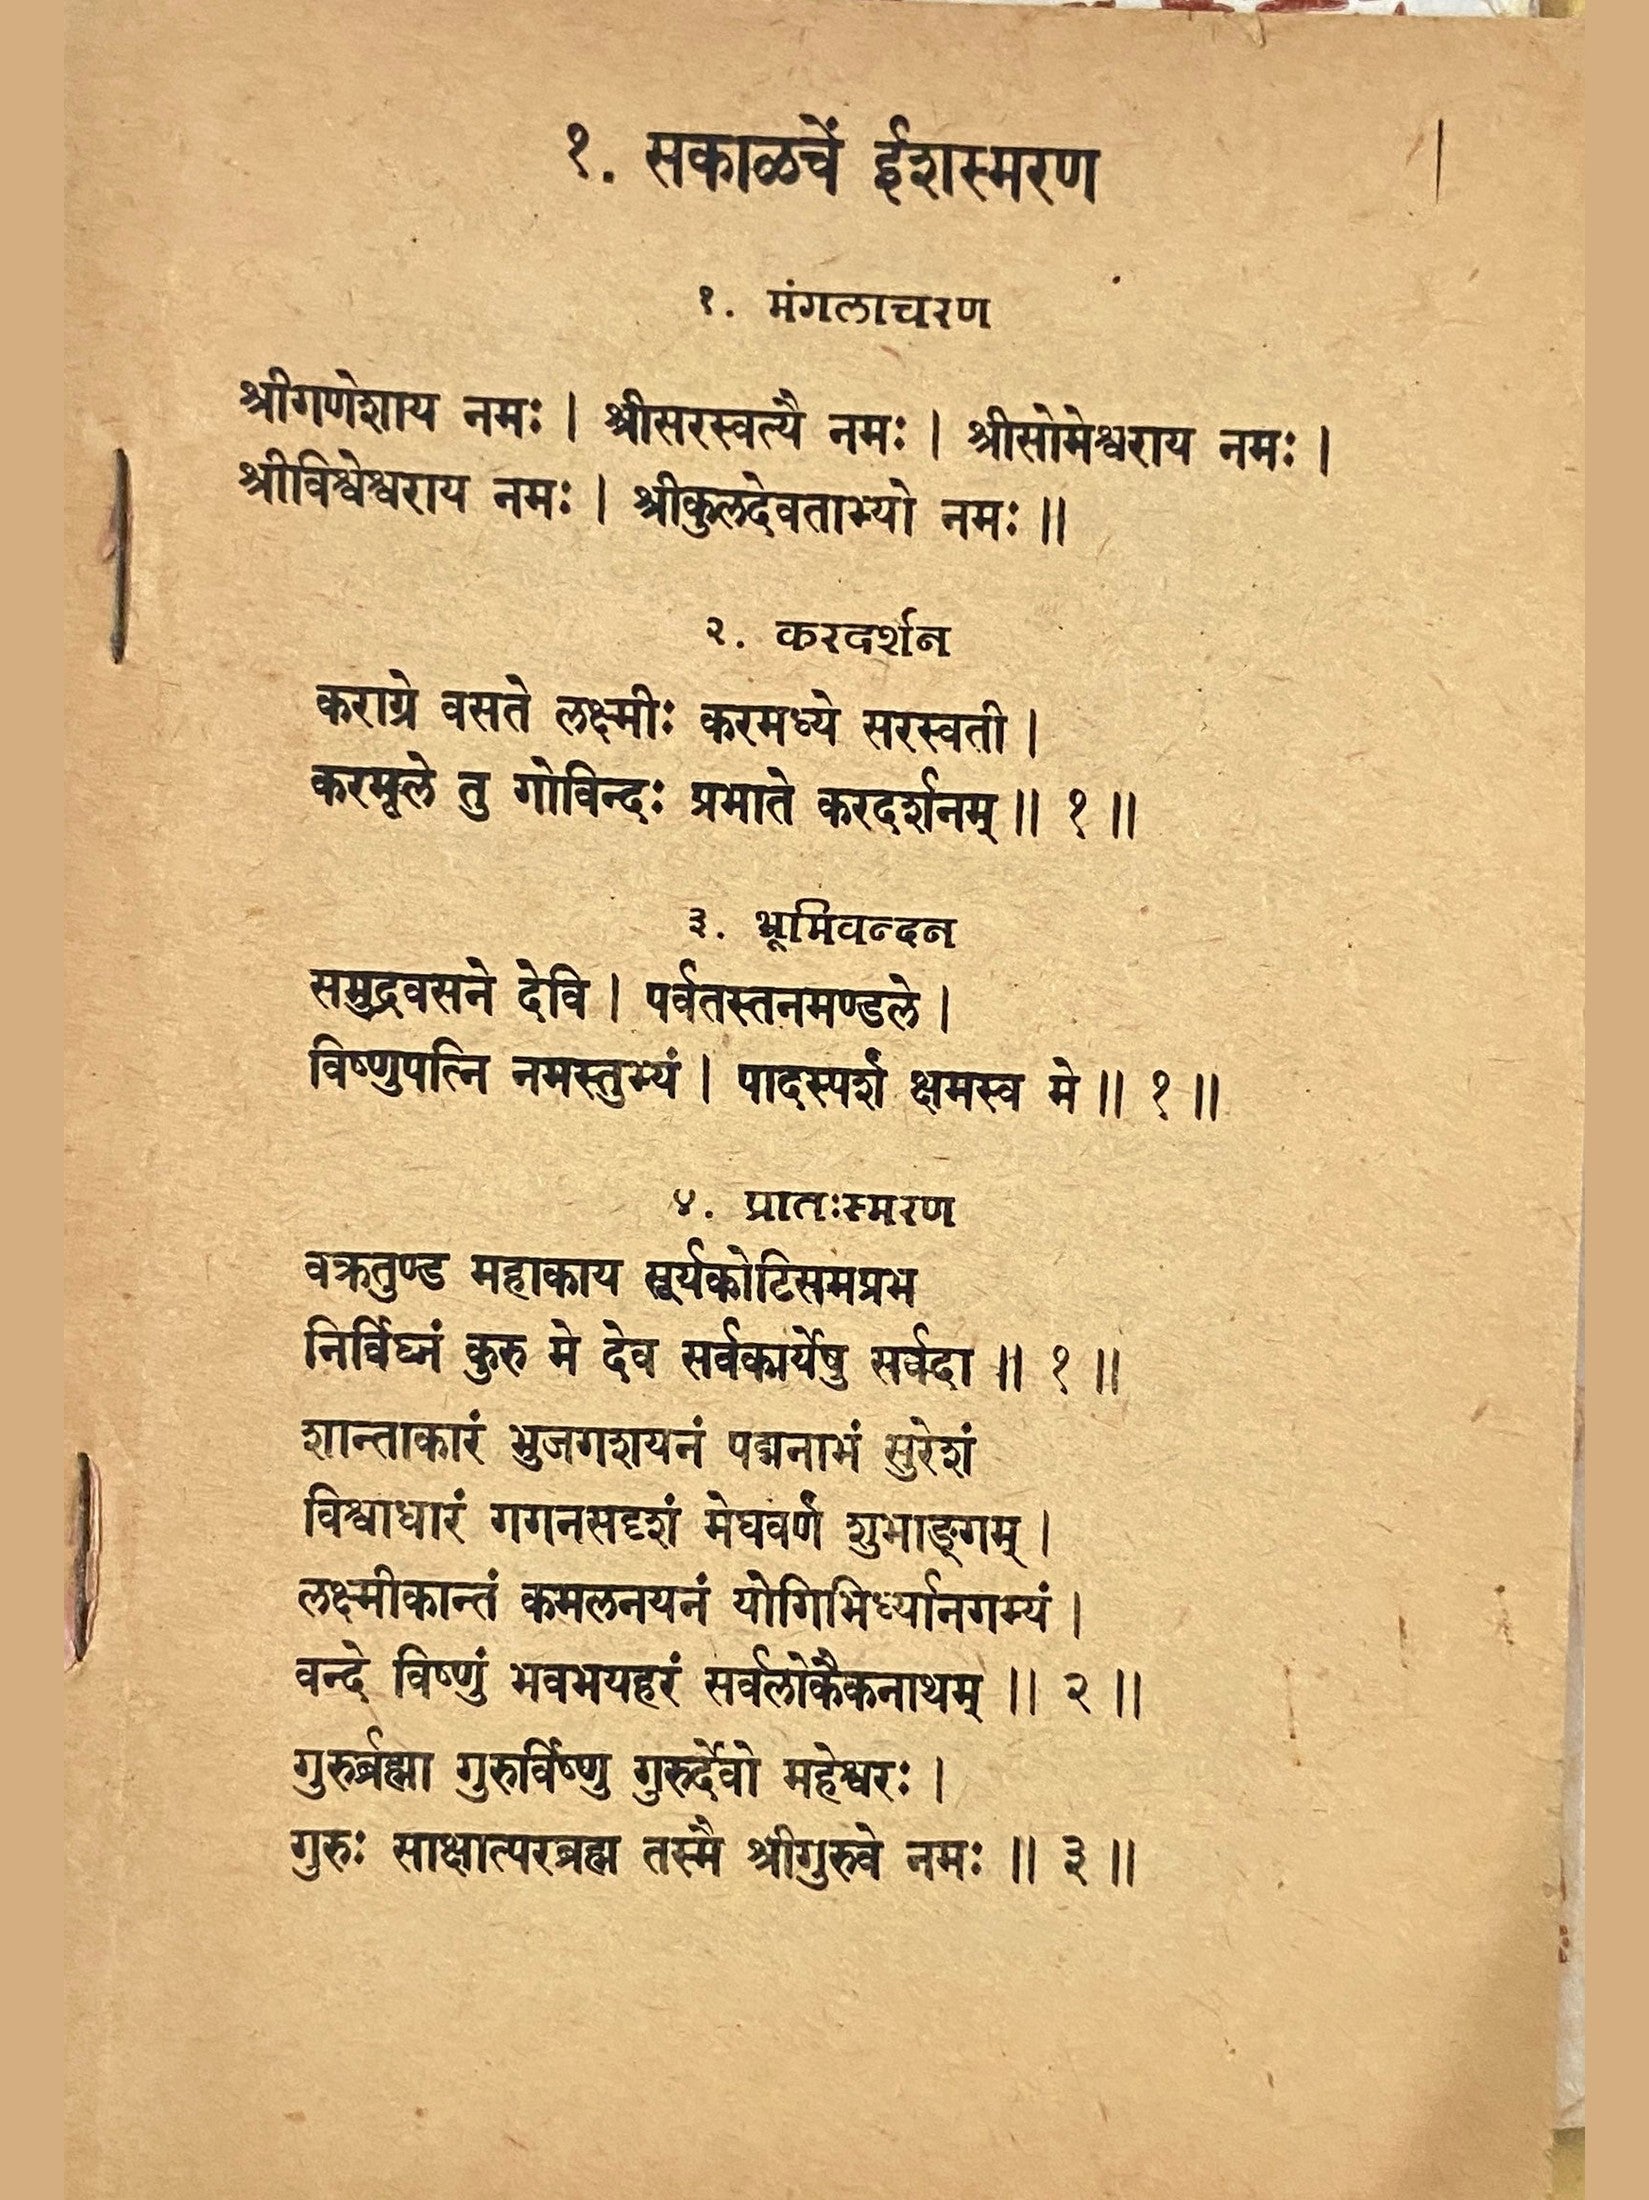 १. सकाळचें ईशस्मरण
१. मंगलाचरण
श्रीगणेशाय नमः । श्रीसरस्वत्यै नमः । श्रीसोमेश्वराय नमः ।
श्रीविश्वेश्वराय नमः । श्रीकुलदेवताभ्यो नमः ॥
२. करदर्शन
कराग्रे वसते लक्ष्मीः करमध्ये सरस्वती ।
करमूले तु गोविन्दः प्रभाते करदर्शनम् ॥ १ ॥
३. भूमिवन्दन
समुद्रवसने देवि । पर्वतस्तनमण्डले ।
विष्णुपत्नि नमस्तुभ्यं । पादस्पर्शं क्षमस्व मे ॥ १ ॥
४. प्रातःस्मरण
वक्रतुण्ड महाकाय सूर्यकोटिसमप्रभ
निर्विघ्नं कुरु मे देव सर्वकार्येषु सर्वदा ॥ १ ॥
शान्ताकारं भुजगशयनं पद्मनाभं सुरेशं
विश्वाधारं गगनसदृशं मेघवर्णं शुभाङ्गम् ।
लक्ष्मीकान्तं कमलनयनं योगिभिर्ध्यानगम्यं ।
वन्दे विष्णुं भवभयहरं सर्वलोकैकनाथम् ॥ २ ॥
गुरुर्ब्रह्मा गुरुर्विष्णु गुरुर्देवो महेश्वरः ।
गुरुः साक्षात्परब्रह्म तस्मै श्रीगुरुवे नमः ॥ ३ ॥